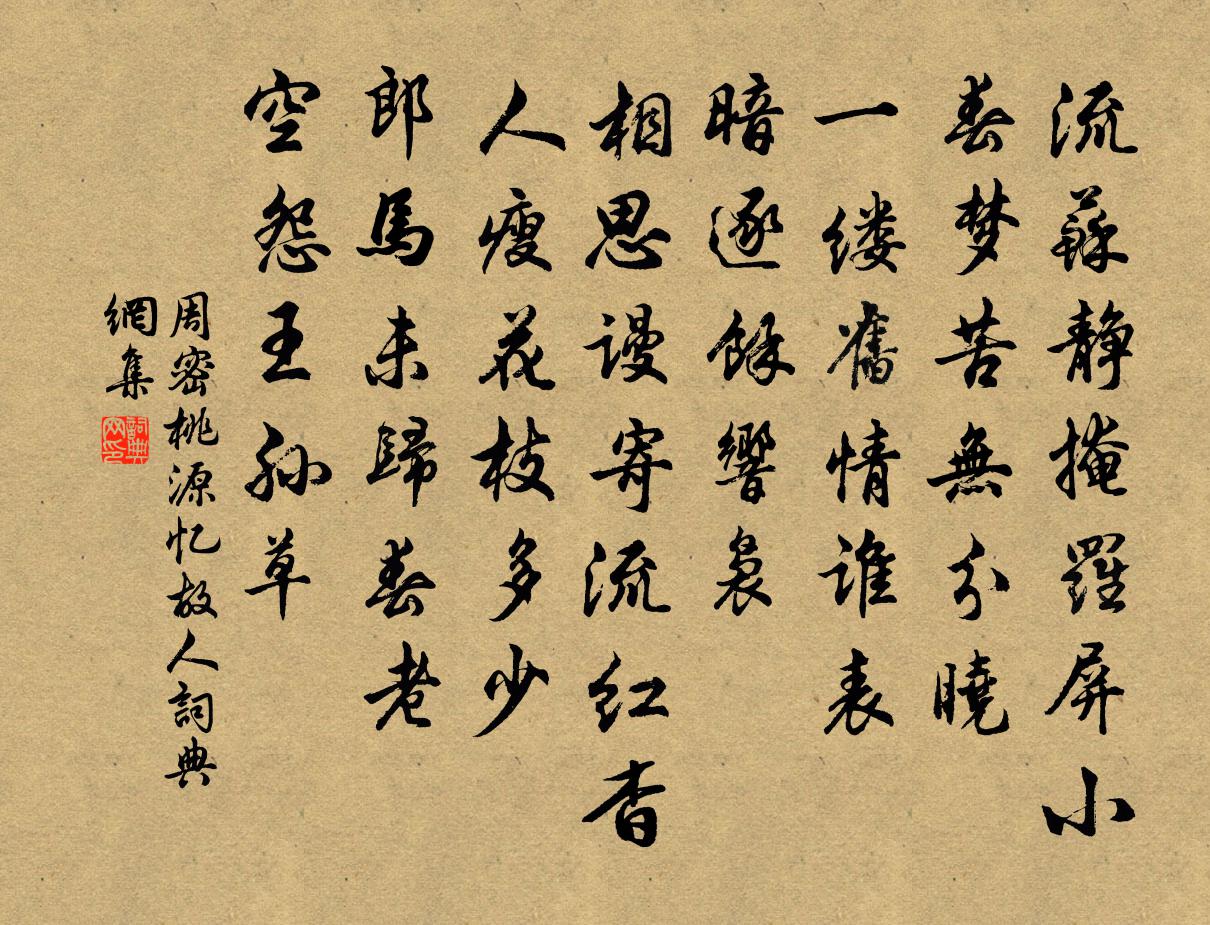 流蘇静掩羅屏小
春梦苦無分曉
一缕舊情誰表
暗逐餘響裊
相思謾寄流红杳
人瘦花枝多少
郎馬未歸春老
空怨王孙草
周密桃源忆故人詞典
網集
詞典
网印